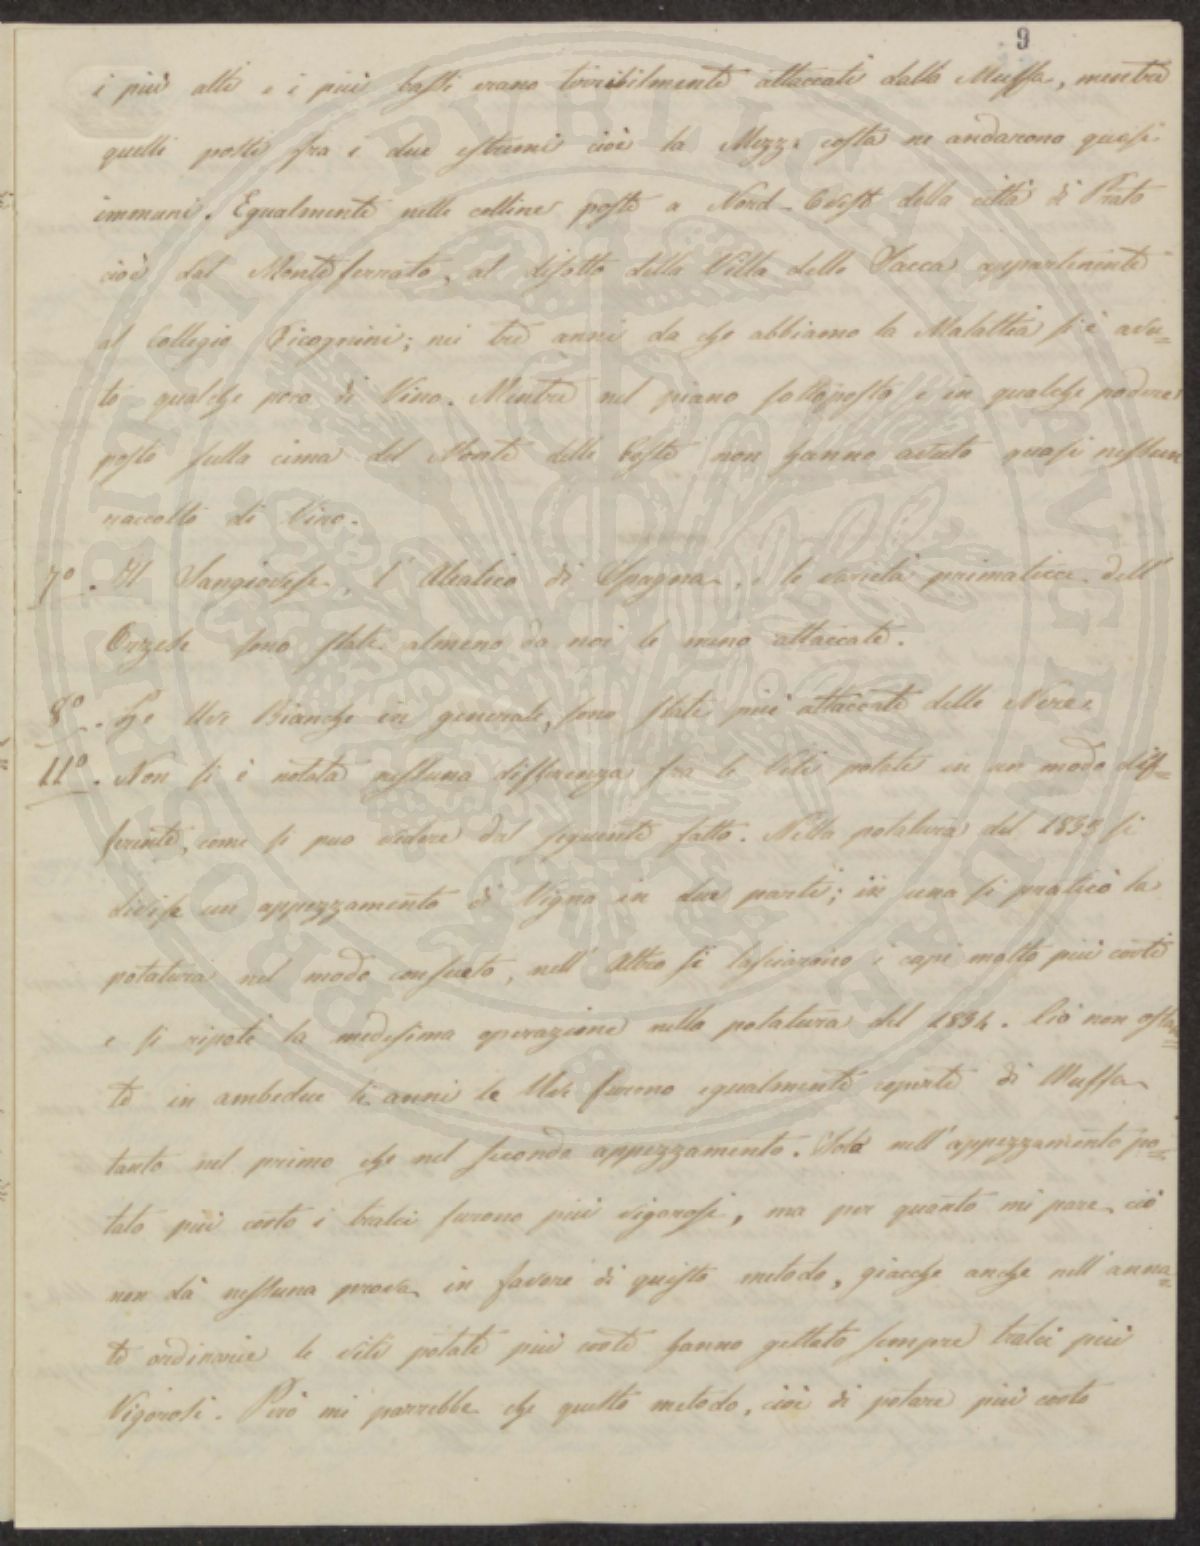 9
i più alti e i più bassi erano terribilmente attaccati dalla Muffa, mentre
quelli posti fra i due estremi cioè la Mezza costa ne andarono quasi
immuni. Egualmente nelle colline poste a Nord-Ovest della città di Prato
cioè dal Monteferrato, al disotto della Villa delle Sacca appartenente
al Collegio Cicognini; nei tre anni da che abbiamo la Malattia si è avu=
to qualche poco di Vino. Mentre nel piano sottoposto e in qualche podere
posto sulla cima del Monte delle Coste non hanno avuto quasi nessun
raccolto di Vino.
7º. Il Sangiovese, l'Aleatico di Spagna, e le varietà primaticce dell'
Orzese sono state almeno da noi le meno attaccate.
8º. Le Uve Bianche in generale, sono state più attaccate delle Nere.
11º. Non si è notata nessuna differenza fra le Viti potate in un modo dif=
ferente, come si può vedere dal seguente fatto. Nella potatura del 1853 si
divise un appezzamento di Vigna in due parti; in una si praticò la
potatura nel modo consueto, nell'Altro si lasciarono i capi molto più corti
e si ripetè la medesima operazione nella potatura del 1854. Ciò non ostan=
te in ambedue li anni le Uve furono egualmente coperte di Muffa
tanto nel primo che nel secondo appezzamento. Solo nell'appezzamento po=
tato più corto i tralci furono più vigorosi, ma per quanto mi pare ciò
non dà nessuna prova in favore di questo metodo, giacche anche nell'anna=
te ordinarie le viti potate più corte hanno gettato sempre tralci più
Vigorosi. Però mi parrebbe che questo metodo, cioè di potare più corto